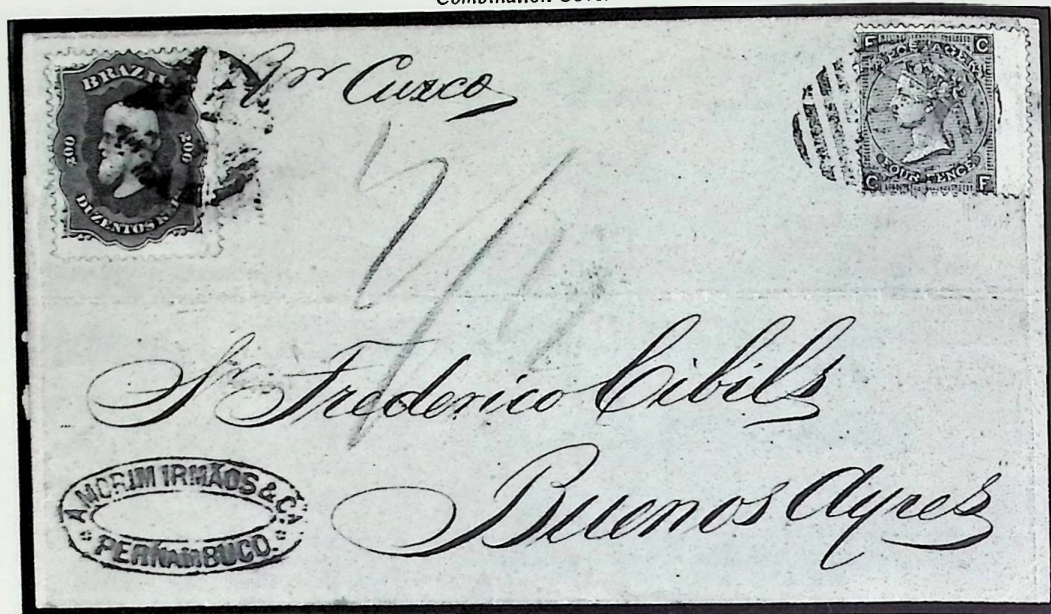 Combination Cover
BRAZIL
200 200
DUZENTOS R
Per Cuzco
F C
POSTAGE
FOUR PENCE
C F
Sr. Frederico Cibils
Buenos Ayres
AMORIM IRMÃOS & Cª
PERNAMBUCO.